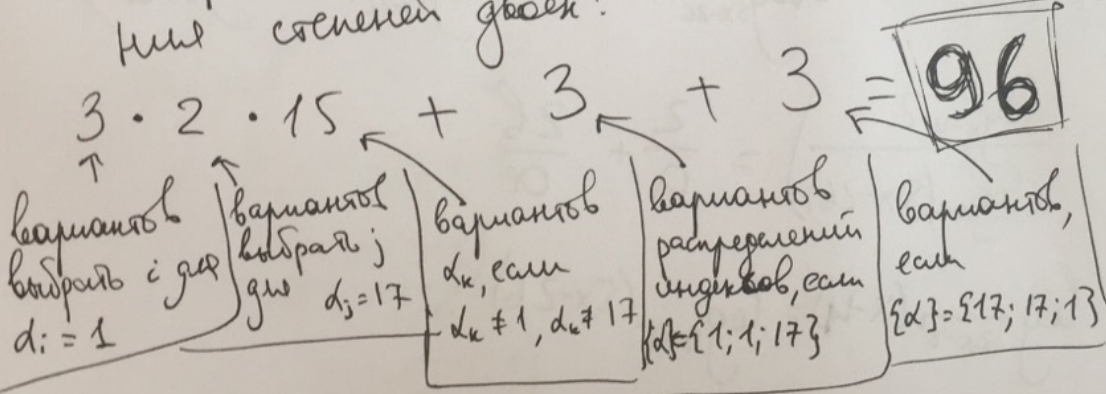 ния степеней двоек:
3 · 2 · 15 + 3 + 3 = 96
вариантов
выбрать i для
αᵢ = 1
вариантов
выбрать j
для αⱼ = 17
вариантов
αₖ, если
αₖ ≠ 1, αₖ ≠ 17
вариантов
распределений
индексов, если
{α}={1; 1; 17}
вариантов,
если
{α}={17; 17; 1}